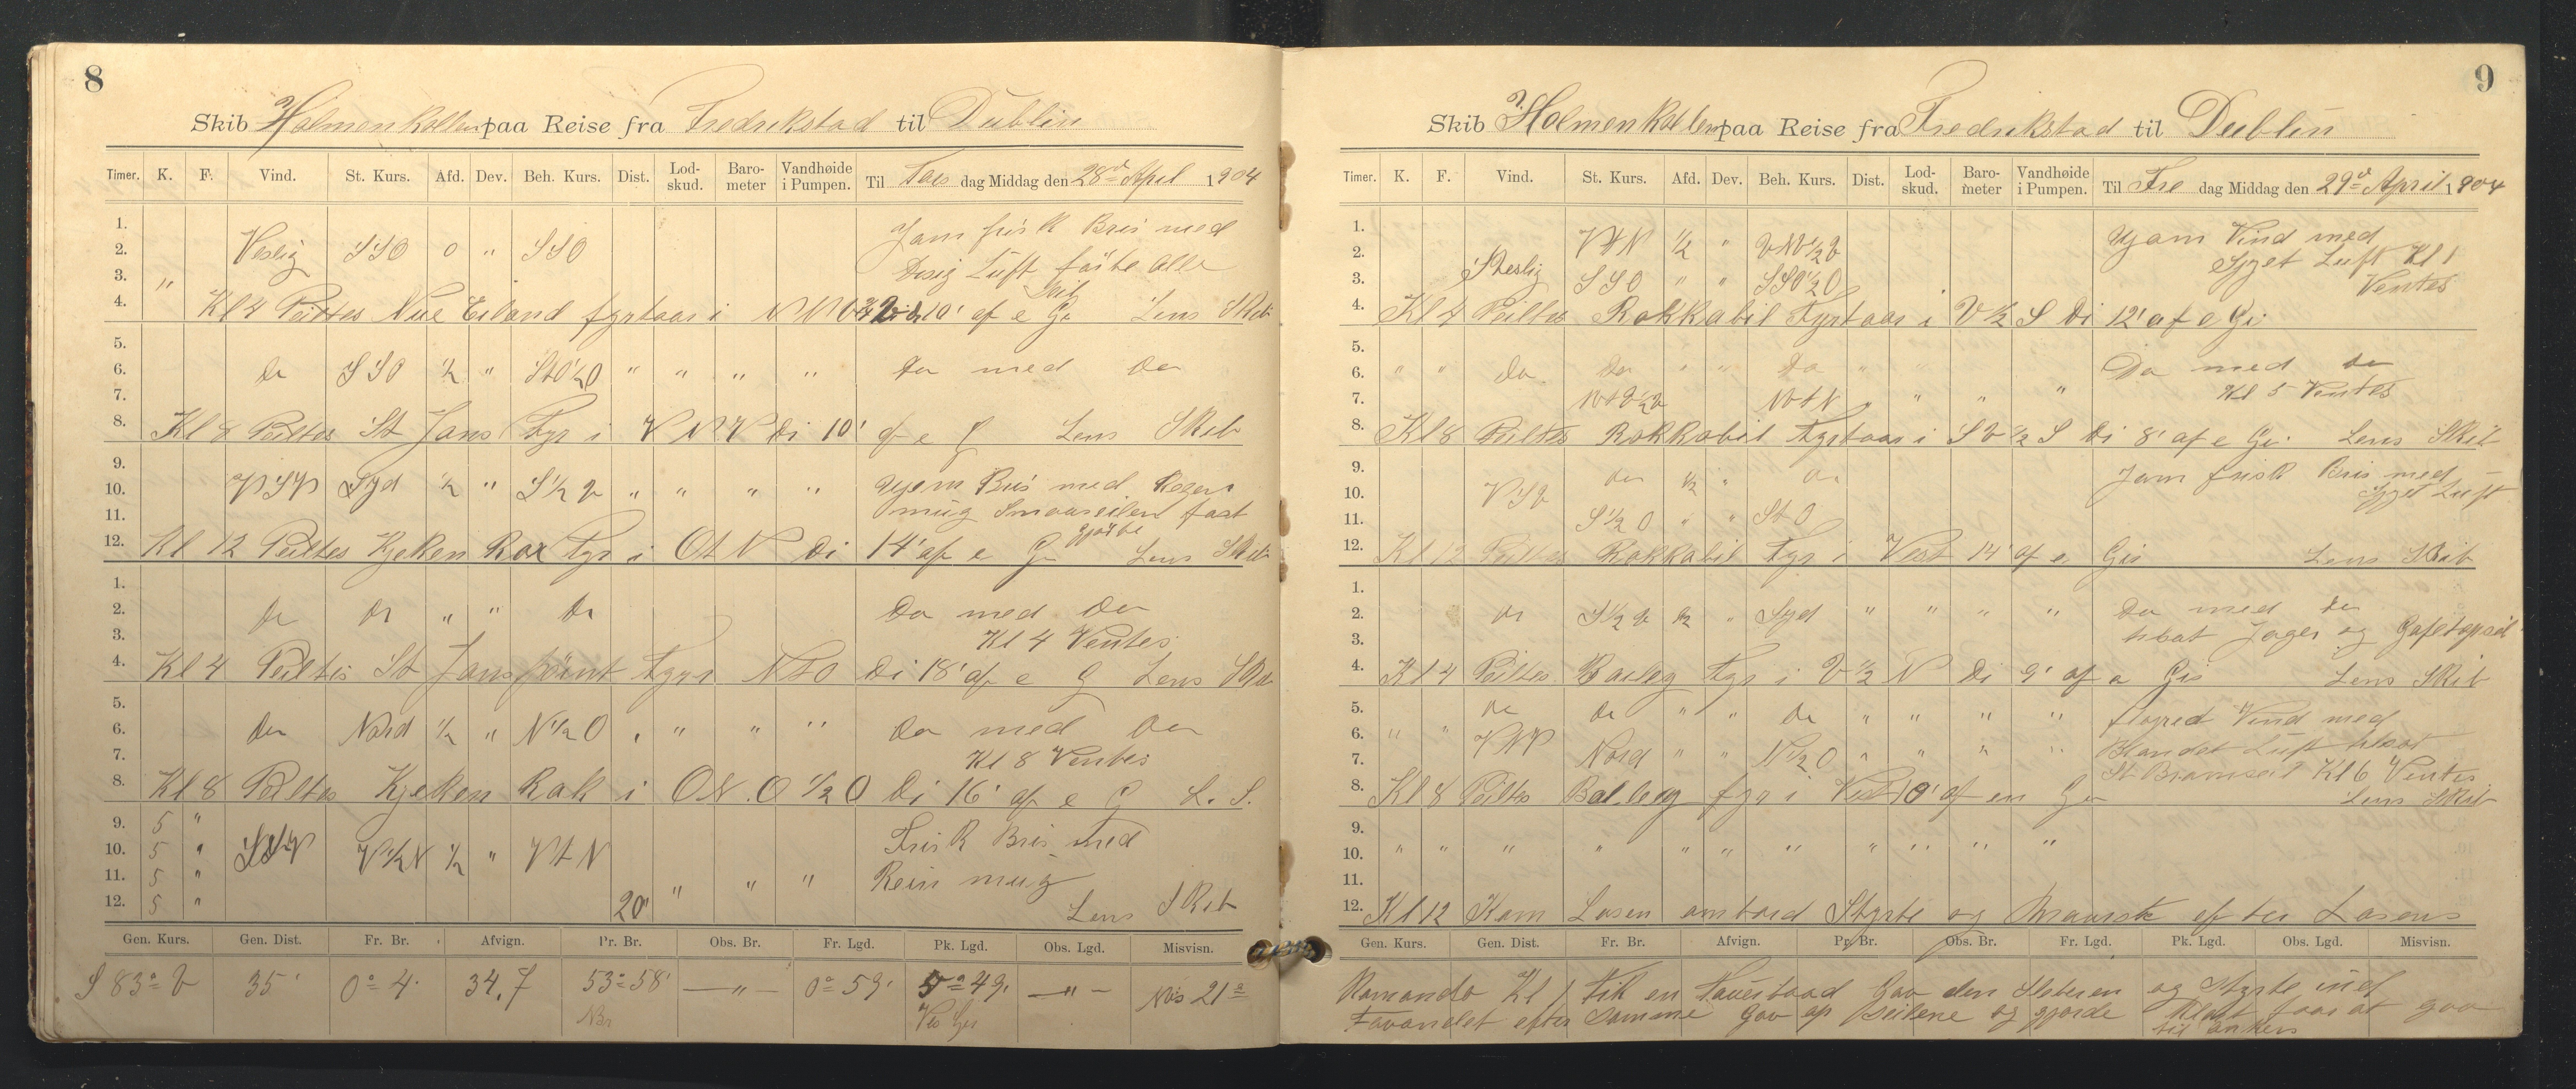 8
Skib Holmenkollen paa Reise fra Fredrikstad til Dublin
Timer. K. F. Vind. St. Kurs. Afd. Dev. Beh. Kurs. Dist. Lod-skud. Baro-meter Vandhøide i Pumpen. Til Tors dag Middag den 28de April 1904
1. Jam frisk Bris med
2. Veslig SSO 0 " SSO
3. " Disig Luft före Alle
Seil
4. Kl 4 Peiltes Eiland fyrtaar i Di 10' af e Gi Lens Skib
5.
6. Do SSO ½ " StO½O " " " " Do med Do
7.
8. Kl 8 Peiltes St Jans Fyr i VNV Di 10' af e G Lens Skib
9.
10. VSV Syd ½ " S½V " " " " Bris med Regn
11. mug Smaaseilen fast
gjorte
12. Kl 12 Peiltes Kjeken Rox Fyr i OtN Di 14' af e G Lens Skib
1.
2. Do Do " " Do Do med Do
3. Kl 4 Ventes
4. Kl 4 Peiltes St Jans point Fyr i NtO Di 18' af e G Lens Skib
5.
6. Do Nord ½ " N½O " " " " Do med Do
7. Kl 8 Ventes
8. Kl 8 Peiltes Kjeken Rok i ON.O½O Di 16' af e G L. S.
9. 5 " Frisk Bris med
10. 5 " V½N ½ " VtN
11. 5 " " " " Rein mug
12. 5 " 20' Lens Skib
Gen. Kurs. Gen. Dist. Fr. Br. Afvign. Pr. Br. Obs. Br. Fr. Lgd. Pk. Lgd. Obs. Lgd. Misvisn.
S 83° V 35' 0° 4' 34,7 53° 58' — " — 0° 59' 5° 49' — " — Mis 21°
NBr
9
Skib Holmenkollen paa Reise fra Fredrikstad til Dublin
Timer. K. F. Vind. St. Kurs. Afd. Dev. Beh. Kurs. Dist. Lod-skud. Baro-meter Vandhøide i Pumpen. Til Fre dag Middag den 29de April 1904
1. Jam Vind med
2. VtN ½ " VNV½V Luft Kl 1
3. SSO " " SSO½O Ventes
4. Kl 4 Peiltes Rokkabil Fyrtaar i V½S Di 12' af e Gi
5.
6. " " Do Do " " Do " " Do med Do
7. NtV½V NVtN " " " Kl 5 Ventes
8. Kl 8 Peiltes Rokkabil Fyrtaar i SV½S Di 8' af e Gi Lens Skib
9. Do ½ " Do Jam frisk Bris med
10. VSV Luft
11. S½O " " StO
12. Kl 12 Peiltes Rokkabil Fyr i Vest 14' af e Gis Lens Skib
1.
2. Do S½V ½ " Syd " " " " Do med Do
3. tilsat Jager og Gafeltopseil
4. Kl 4 Peiltes Bailey Fyr i V½N Di 9' af e Gis Lens Skib
5. Do Do " " Do " " " " Vind med
6. " " VtN
7. Nord " " N½O " " " " Blandet Luft tilsat
St Bramseil Kl 6 Ventes
8. Kl 8 Peiltes Bailey fyr i Vest 10' af en Gi Lens Skib
9.
10. " " " " " " " " " " "
11.
12. Kl 12 Kom Losen ombord Styrte og efter Losens
Gen. Kurs. Gen. Dist. Fr. Br. Afvign. Pr. Br. Obs. Br. Fr. Lgd. Pk. Lgd. Obs. Lgd. Misvisn.
Komando Kl 1 Fik en Gav den Sleberen og Styrte ind
efter Samme Gav op Seilene og gjorde Klart for at gaa
til Ankers